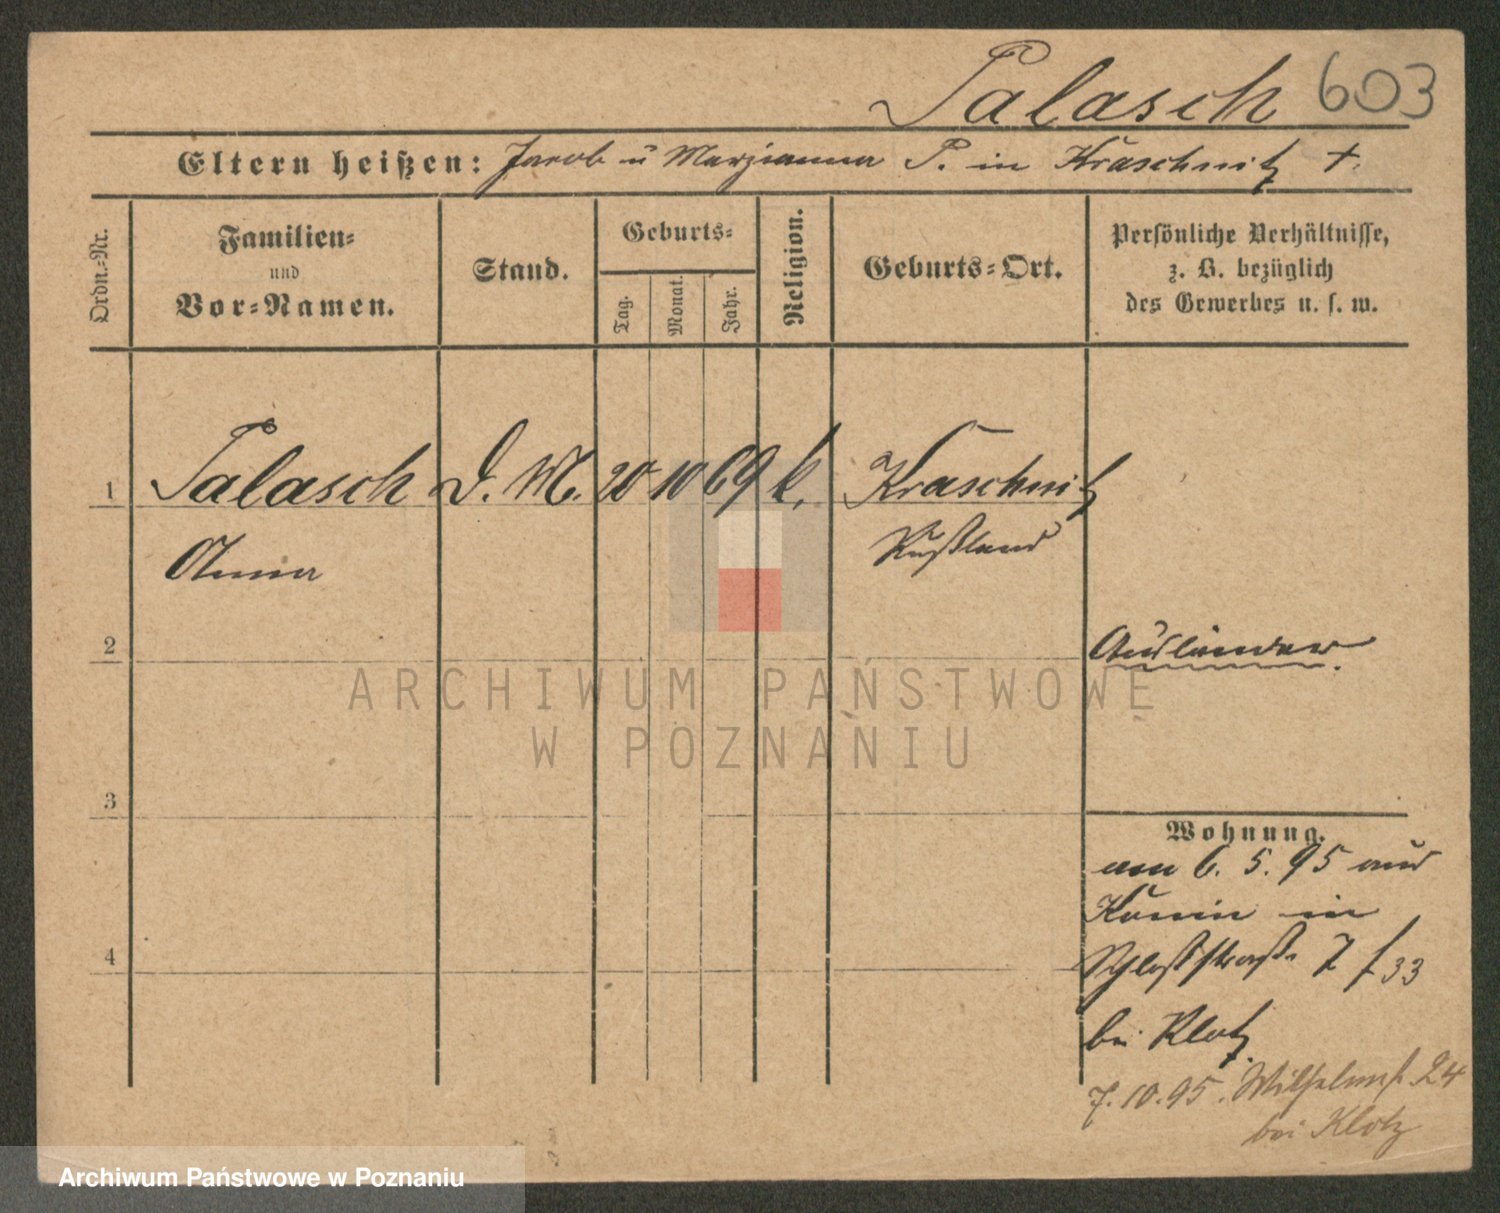 Palasch 603
Eltern heißen: Jacob u Marzianna P. in Kraschnitz †.
Ordn.-Nr.
Familien-
und
Vor-Namen.
Stand.
Geburts-
Tag.
Monat.
Jahr.
Religion.
Geburts-Ort.
Persönliche Verhältnisse,
z. B. bezüglich
des Gewerbes u. s. w.
1 Palasch D. M. 20 10 69 k. Kraschnitz
Anna Rußland
2
Ausländer.
ARCHIWUM PAŃSTWOWE
W POZNANIU
3
Wohnung.
am 6. 5. 95 aus
Konin in
4
Schloßstraße 7 f 33
bei Klotz
7. 10. 95. Wilhelmst. 24
bei Klotz
Archiwum Państwowe w Poznaniu